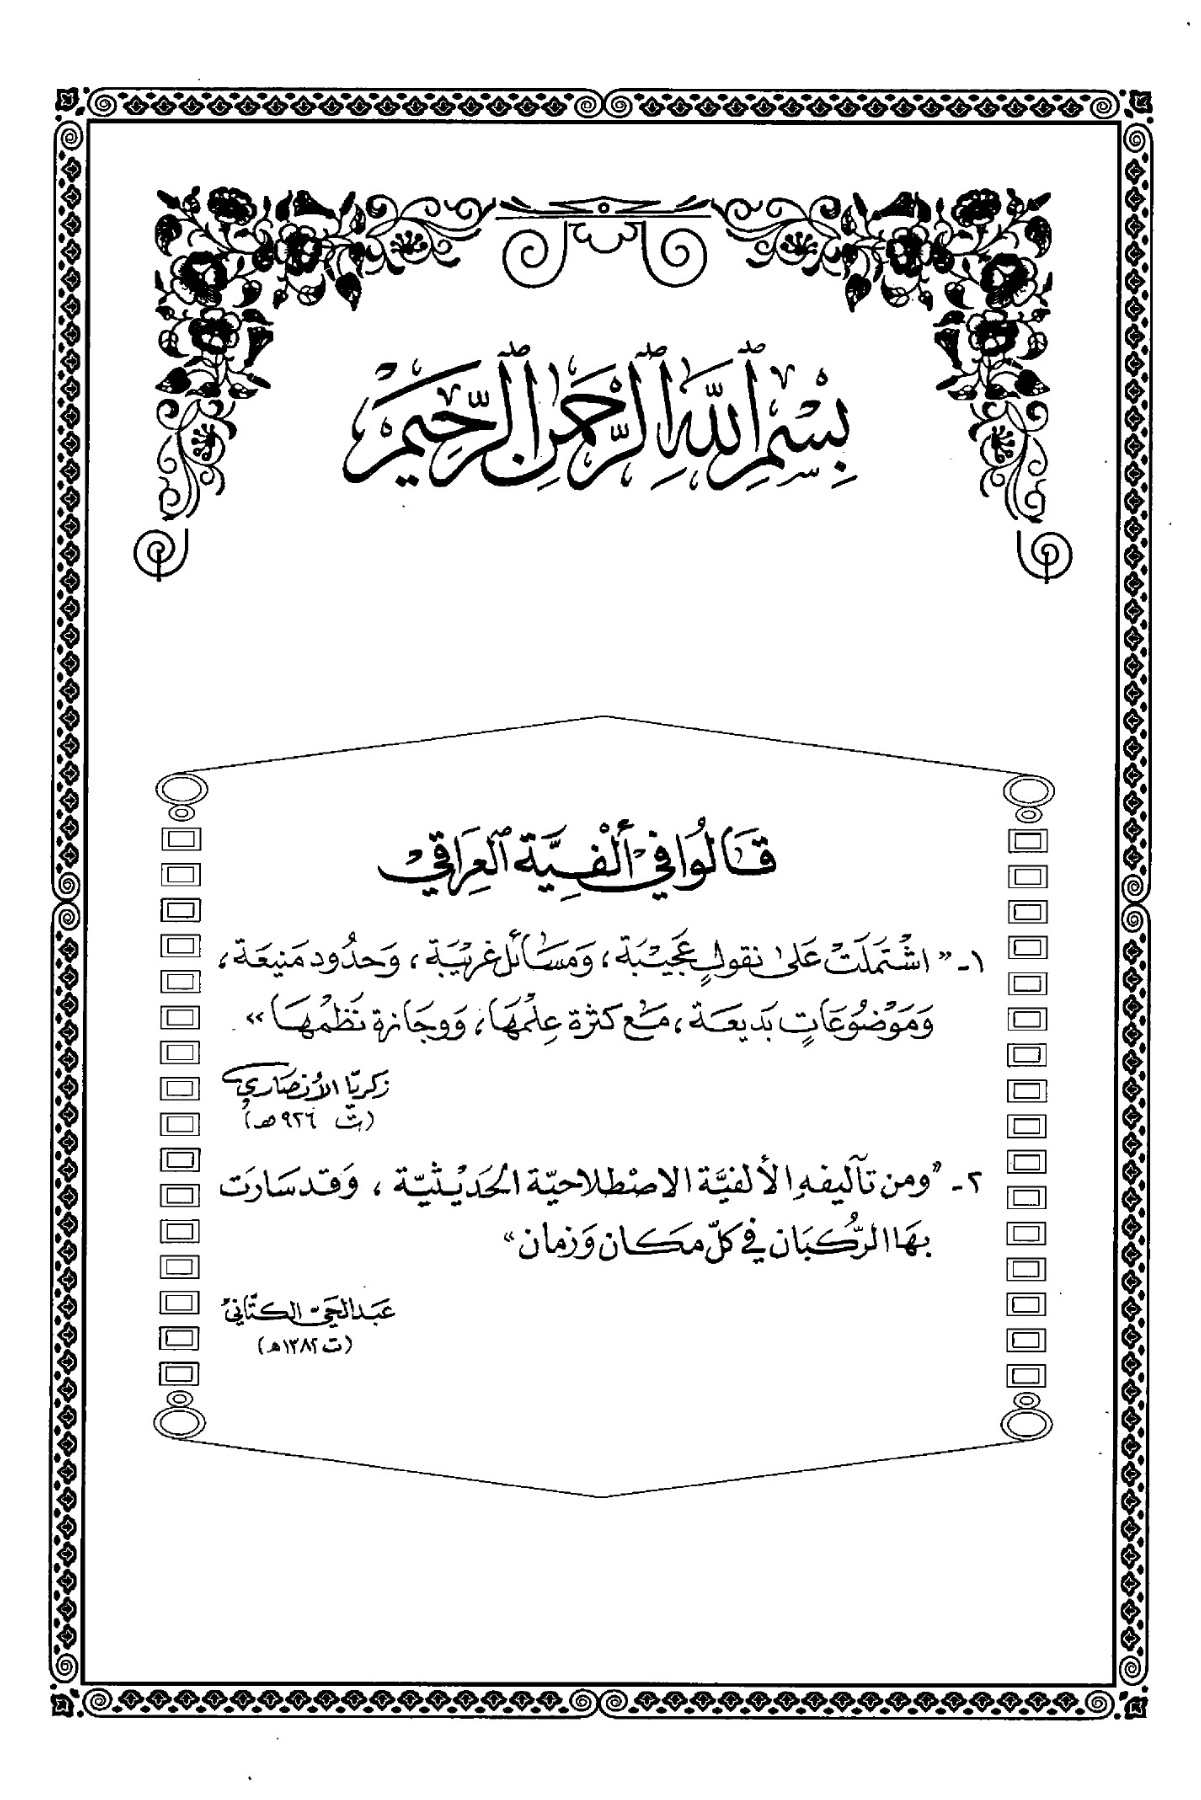 بِسْمِ ٱللَّهِ ٱلرَّحْمَٰنِ ٱلرَّحِيمِ
قَالُوا في أَلْفِيَّة ٱلعِرَاقيِّ
١- "اشْتَمَلَتْ عَلىٰ نقولٍ عَجيْبَة، وَمَسَائل غريْبَة، وَحدُود مَنيعَة،
وَمَوْضُوعَاتٍ بَديعَة، مَع كثرة عِلْمهَا، وَوجَازة نَظْمهَا»
زكريّا الأنصَاري
(ت ٩٢٦هـ)
٢- "ومن تآليفهِ الألفيَّة الاصْطلاحيّة الحَديْثيّة، وَقد سَارَت
بهَا الرُّكبَان في كلّ مكَان وَزمَان"
عَبدالحَيّ الكتّاني
(ت ١٣٨٢هـ)